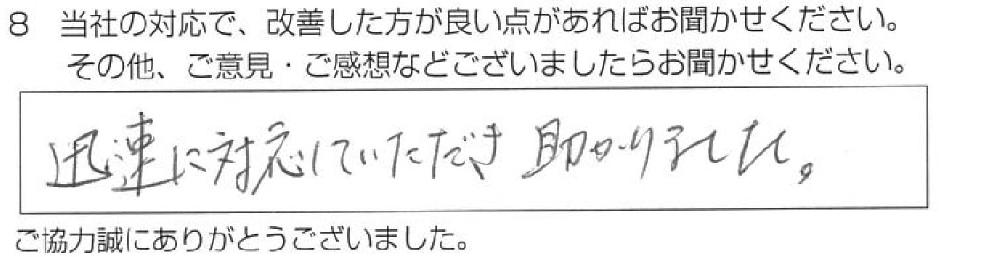 8 当社の対応で、改善した方が良い点があればお聞かせください。
その他、ご意見・ご感想などございましたらお聞かせください。
迅速に対応していただき助かりました。
ご協力誠にありがとうございました。